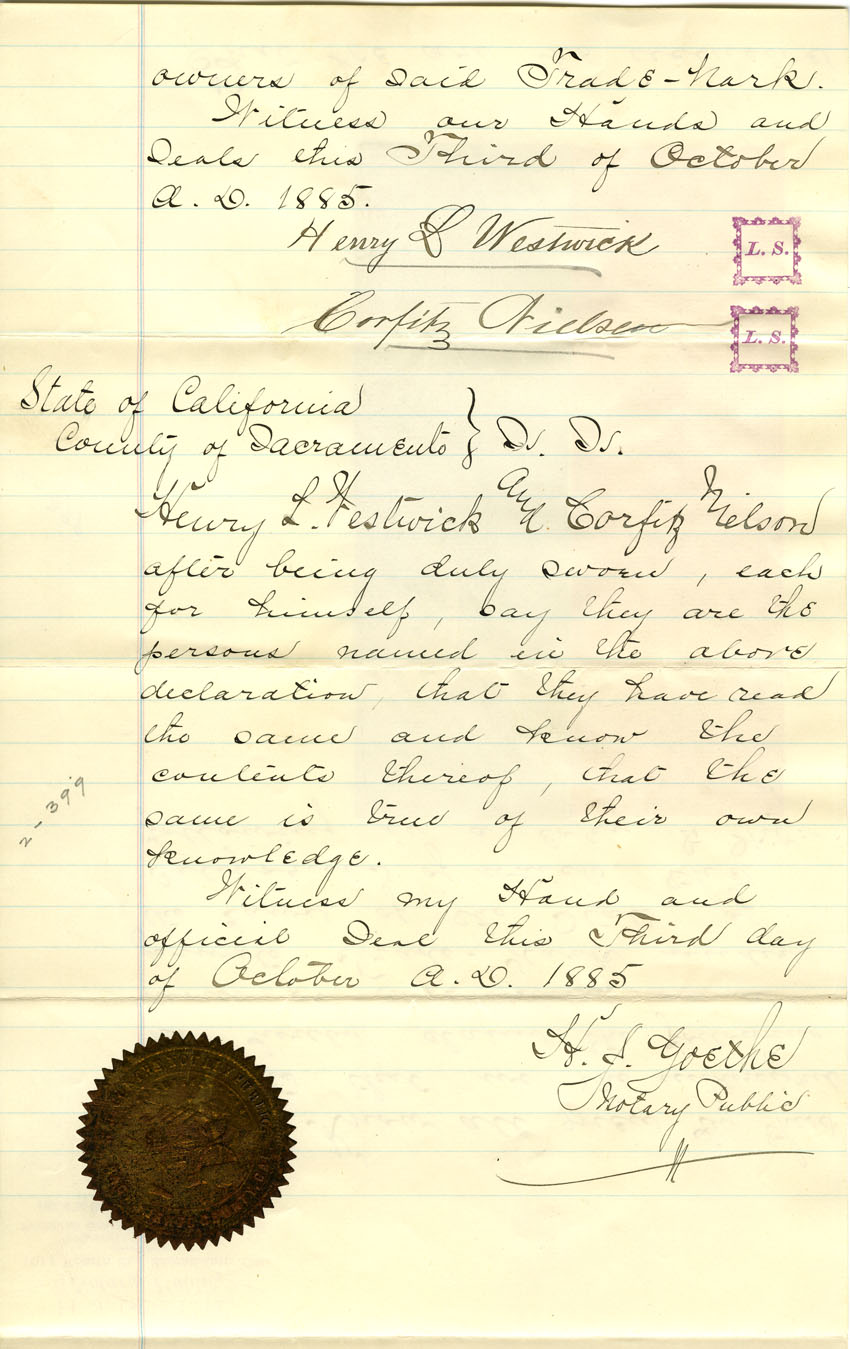 owners of said Trade-Mark.
Witness our Hands and
Seals this Third of October
A. D. 1885.
Henry L Westwick
L. S.
Corfitz Nielsen
L. S.
State of California
County of Sacramento } Ss. Ss.
Henry L. Westwick and Corfitz Nielson
after being duly sworn, each
for himself, say they are the
persons named in the above
declaration, that they have read
the same and know the
contents thereof, that the
same is true of their own
knowledge.
2-399
Witness my Hand and
official Seal this Third day
of October A. D. 1885
H. J. Goethe
Notary Public